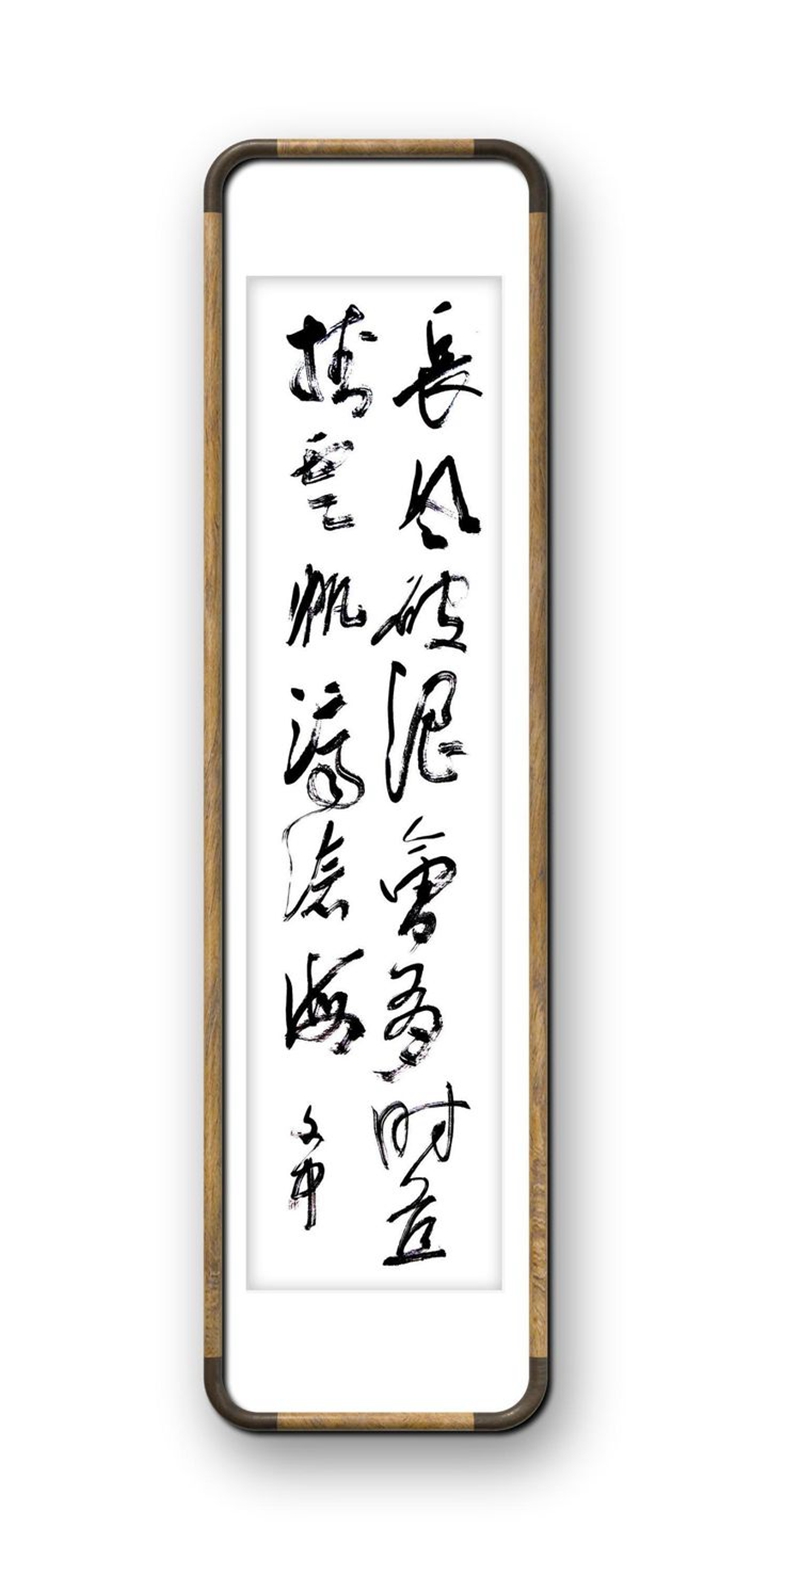 長风破浪會有时直
掛雲帆濟滄海
文中